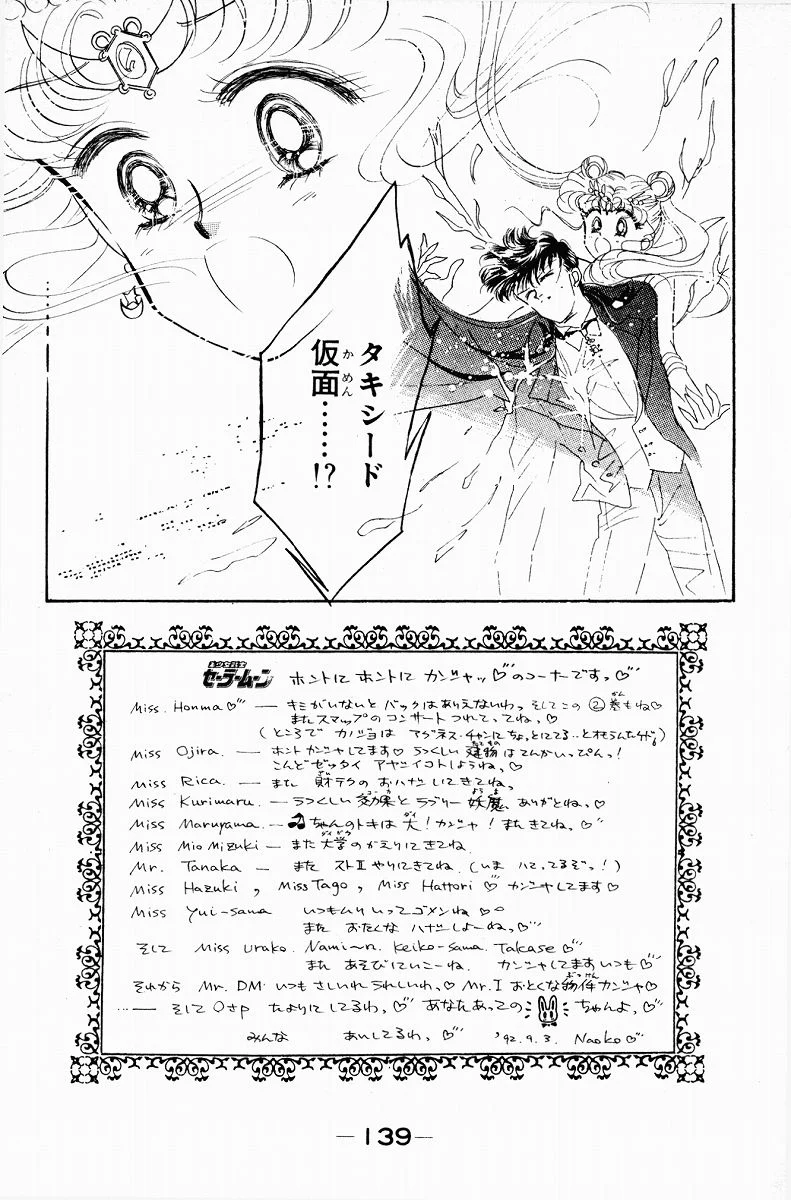 タキシード
仮面……!?
かめん
美少女戦士
セーラームーン ホントに ホントに カンシャッ♡のコーナーですっ♡
Miss. Honma♡ — キミがいないと バックはありえないわっ そしてこの ②巻もね♡
またスマップの コンサート つれてってね。♡
(ところで カノジョは アグネス・チャンに ちょっとにてる‥と
Miss Ojira. — ホント カンシャしてます♡ うつくしい 建物はてんかいっぴんっ!
こんどゼッタイ アヤシイコトしようね、♡
Miss Rica. — また 財テクの おハナシ しにきてね。
Miss Kurimaru. — うつくしい 効果と ラブリー 妖魔、ありがとね。♡
Miss Maruyama. — ちゃんのトキは 大!カンシャ! また きてね。♡
Miss Mio Mizuki — また 大学の かえりに きてね.
Mr. Tanaka — また ストⅡ やりにきてね. (いま ハマってるぞっ!)
Miss Hazuki, Miss Tago, Miss Hattori ♡ カンシャしてます♡
Miss Yui-sama いつもムリいってゴメンね♡
また おたくな ハナシ しよーねっ♡
そして Miss Urako. Nami〜n. Keiko-sama. Takase ♡
また あそびにいこーね. カンシャしてます いつも♡
それから Mr. DM. いつも さしいれ うれしいわ。♡ Mr. I おトクな物件カンシャ♡
…— そして Oさp たよりに してるわ。♡ あなたあっての ちゃんよ。♡
みんな あいしてるわ。♡ '92. 9. 3. Naoko♡
—139—